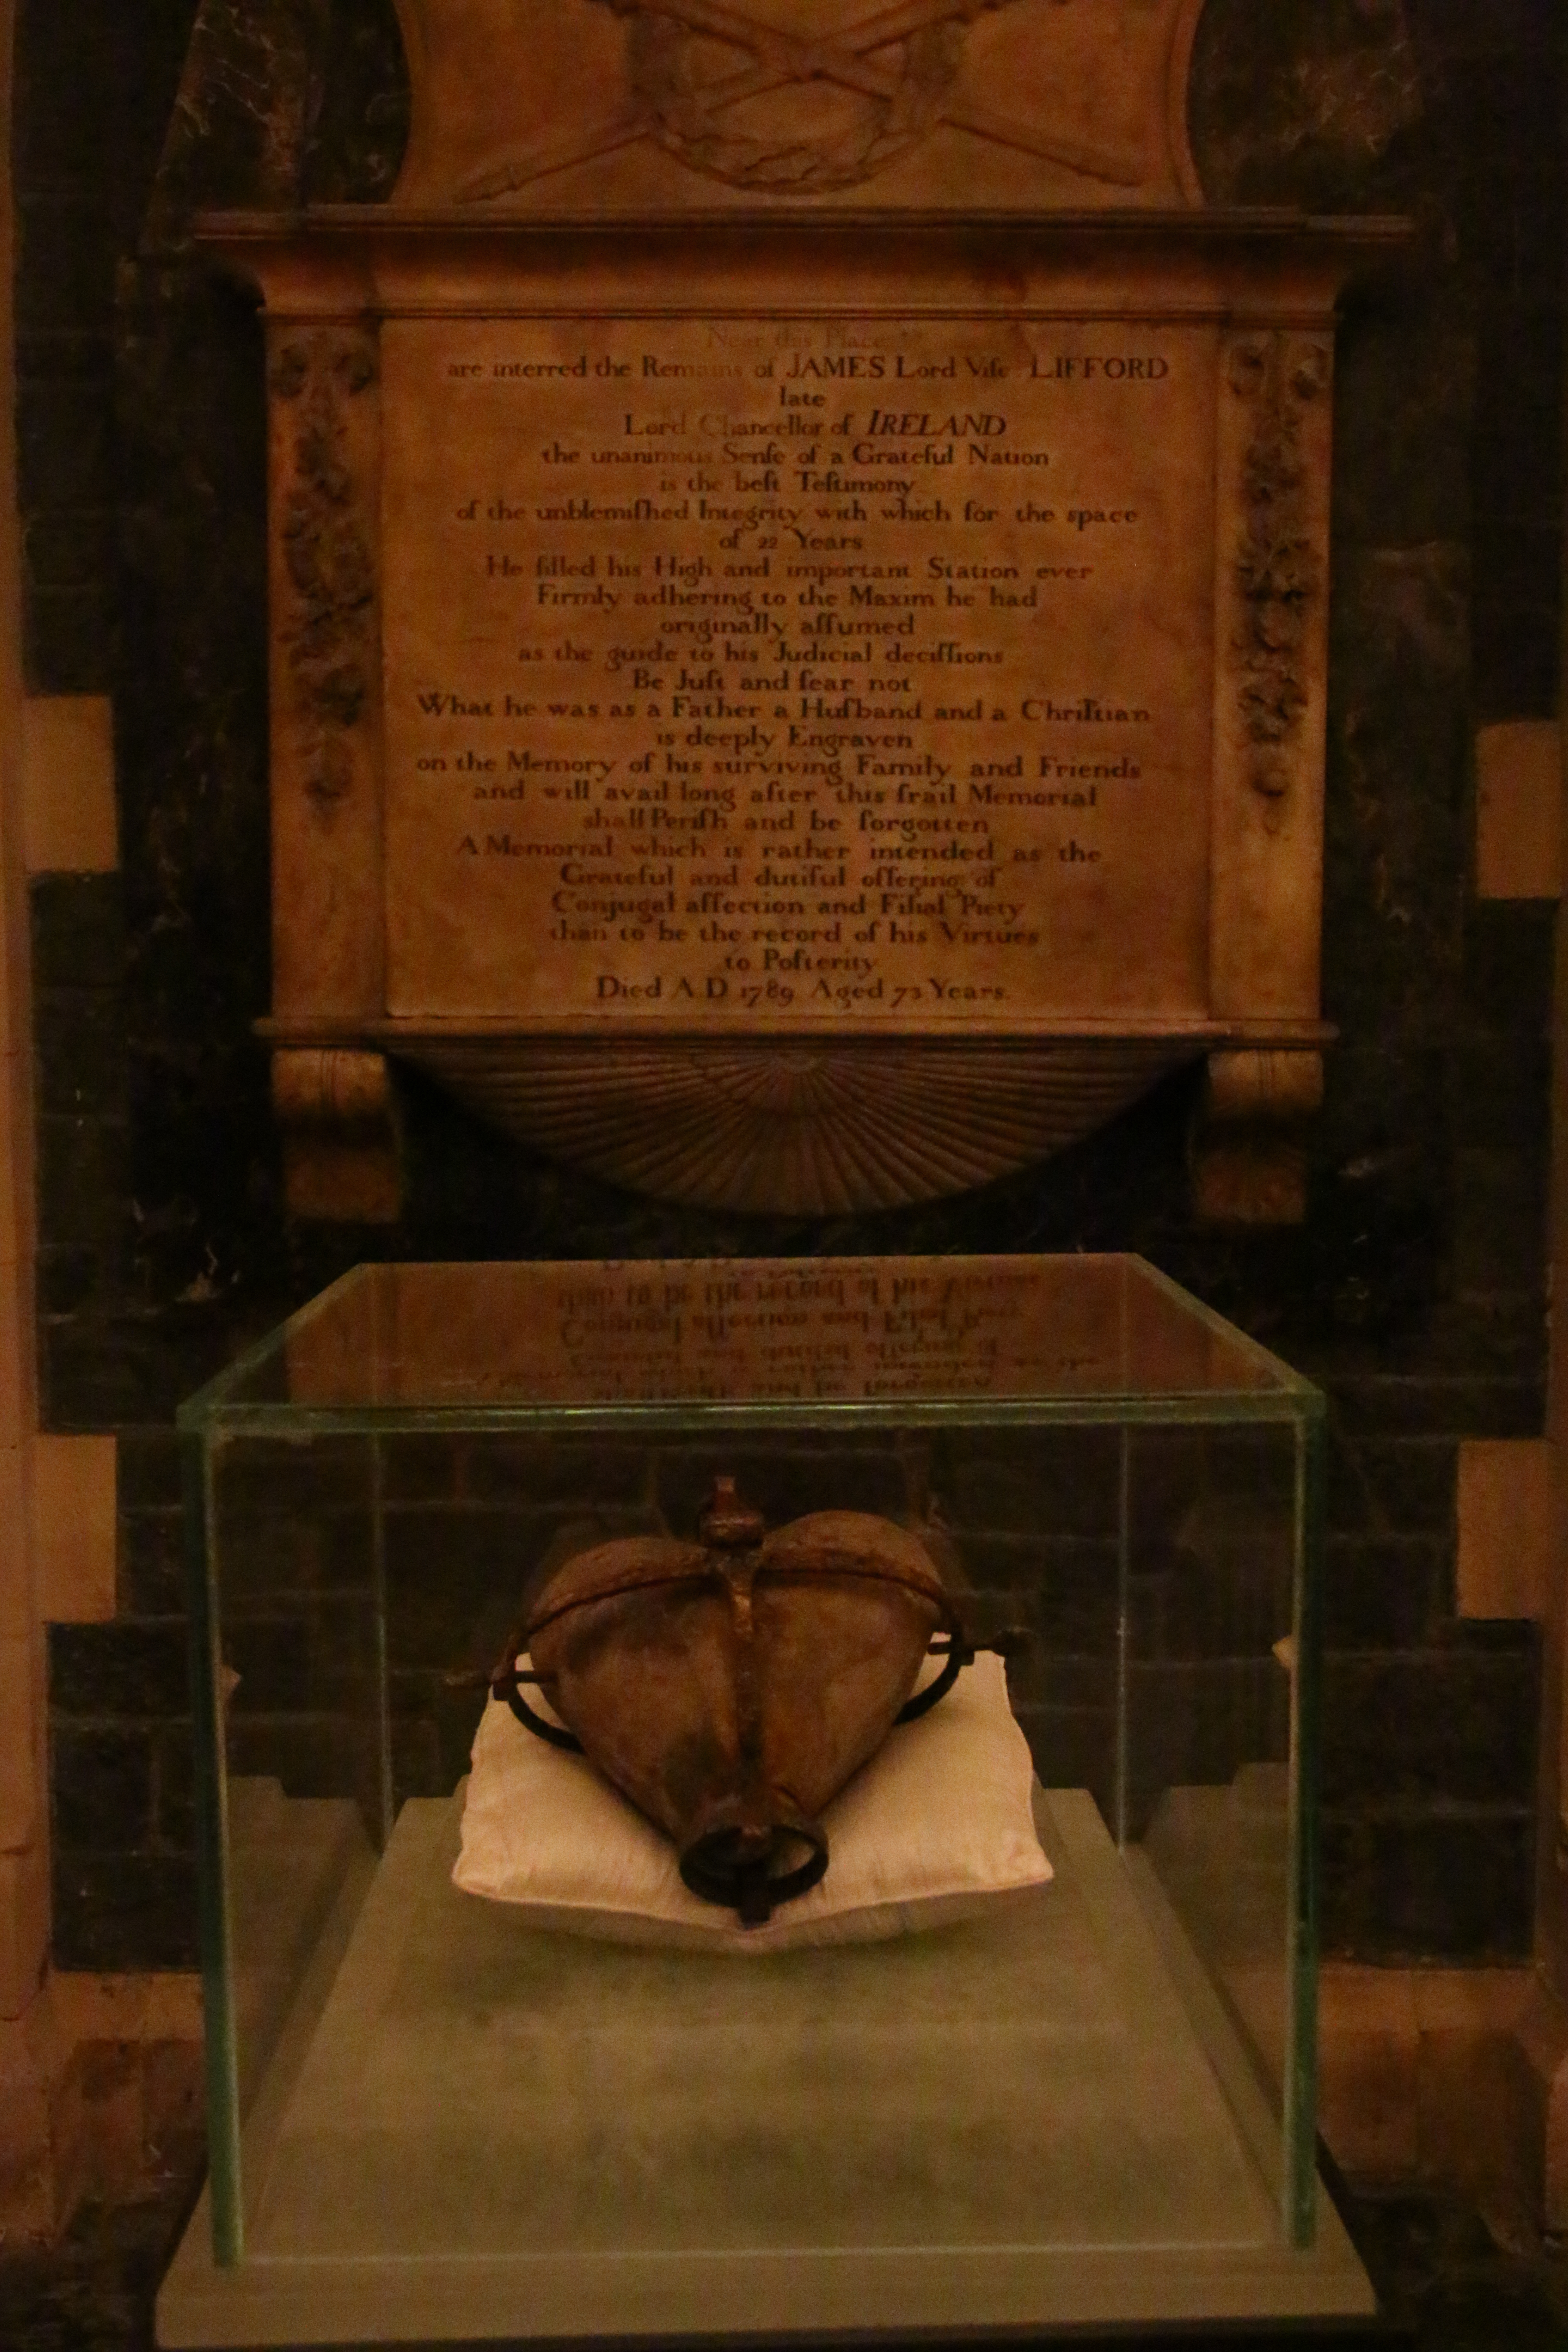 Near this Place
are interred the Remains of JAMES Lord Viſc LIFFORD
late
Lord Chancellor of IRELAND
the unanimous Senſe of a Grateful Nation
is the beſt Teſtimony
of the unblemiſhed Integrity with which for the space
of 22 Years
He filled his High and important Station ever
Firmly adhering to the Maxim he had
originally aſſumed
as the guide to his Judicial deciſſions
Be Juſt and fear not
What he was as a Father a Huſband and a Chriſtian
is deeply Engraven
on the Memory of his surviving Family and Friends
and will avail long after this frail Memorial
shall Periſh and be forgotten
A Memorial which is rather intended as the
Grateful and dutiful offering of
Conjugal affection and Filial Piety
than to be the record of his Virtues
to Poſterity
Died A D 1789 Aged 73 Years.